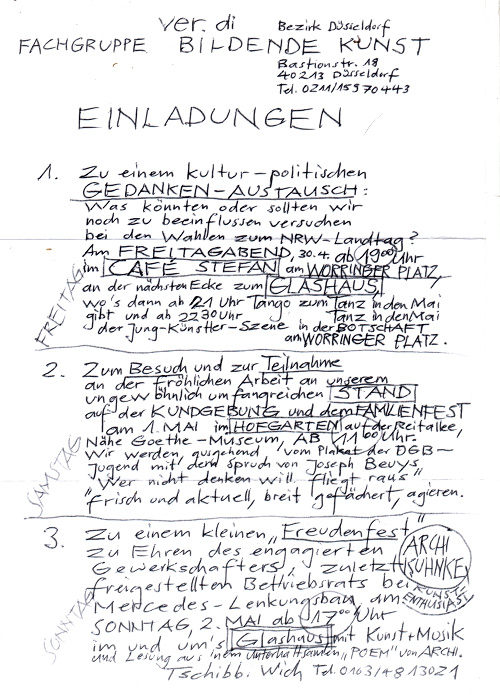 ver. di Bezirk Düsseldorf
FACHGRUPPE BILDENDE KUNST
Bastionstr. 18
40213 Düsseldorf
Tel. 0211/15970443
EINLADUNGEN
1. Zu einem kultur-politischen
GEDANKEN-AUSTAUSCH:
Was könnten oder sollten wir
noch zu beeinflussen versuchen
bei den Wahlen zum NRW-Landtag?
Am FREITAGABEND, 30.4. ab 19 00 Uhr
im CAFE STEFAN am WORRINGER PLATZ,
an der nächsten Ecke zum GLASHAUS,
wo's dann ab 21 Uhr Tango zum Tanz in den Mai
gibt und ab 22 30 Uhr Tanz in den Mai
der Jung-Künstler-Szene in der BOTSCHAFT
am WORRINGER PLATZ.
FREITAG
2. Zum Besuch und zur Teilnahme
an der fröhlichen Arbeit an unserem
ungewöhnlich umfangreichen STAND
auf der KUNDGEBUNG und dem FAMILIENFEST
am 1. MAI im HOFGARTEN auf der Reitallee,
Nähe Goethe-Museum, AB 11 00 Uhr.
Wir werden, ausgehend vom Plakat der DGB-
Jugend mit dem Spruch von Joseph Beuys
"Wer nicht denken will fliegt raus"
"frisch und aktuell, breit gefächert, agieren.
SAMSTAG
3. Zu einem kleinen „Freudenfest"
zu Ehren des engagierten
Gewerkschafters, zuletzt
freigestellten Betriebsrats bei
Mercedes-Lenkungsbau, am
SONNTAG, 2. MAI ab 17 00 Uhr
im und um's Glashaus mit Kunst+Musik
und Lesung aus 'nem "POEM" von ARCHI.
Tschibb. Wich Tel. 0163/4813021
SONNTAG
ARCHI
KUHNKE
KUNST-
ENTHUSIAST